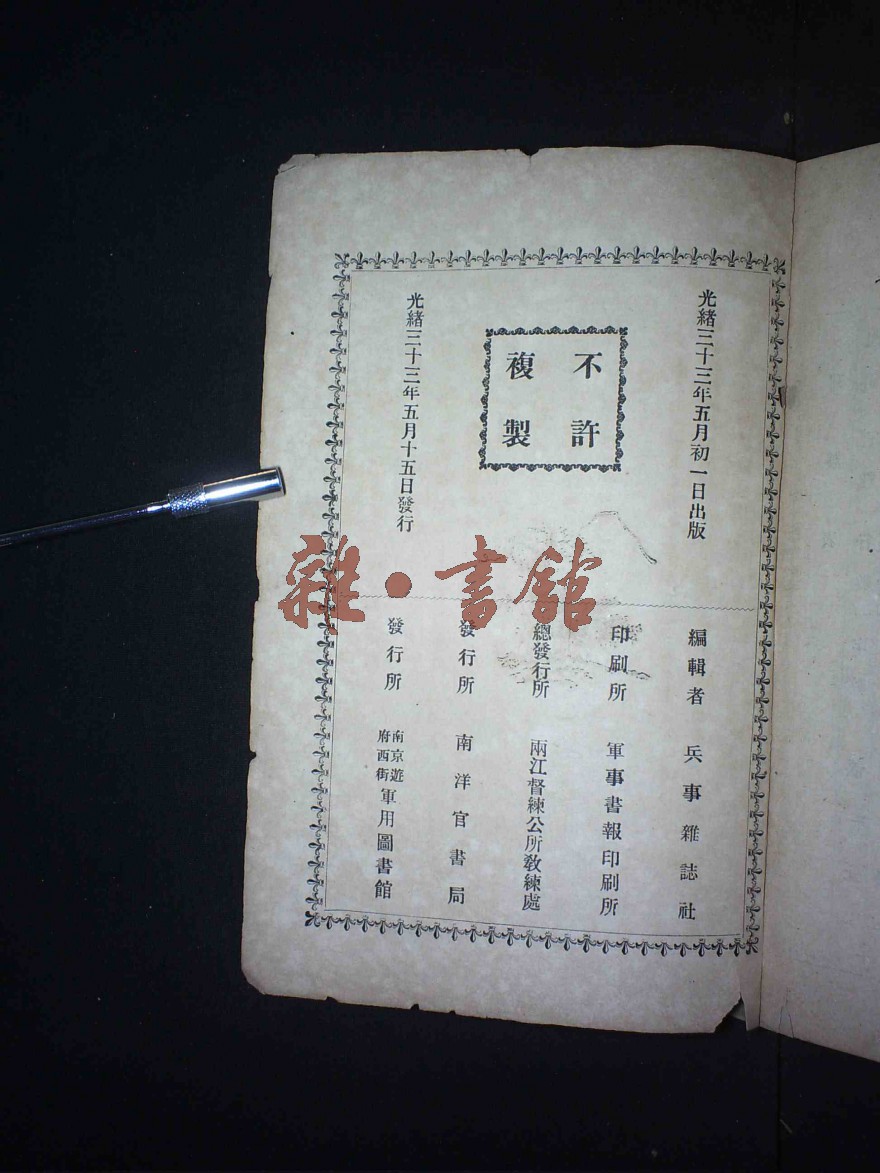 光緒三十三年五月初一日出版
不許
複製
光緒三十三年五月十五日發行
編輯者 兵事雜誌社
印刷所 軍事書報印刷所
總發行所 兩江督練公所教練處
發行所 南洋官書局
發行所 南京遊府西街軍用圖書館
雜·書館